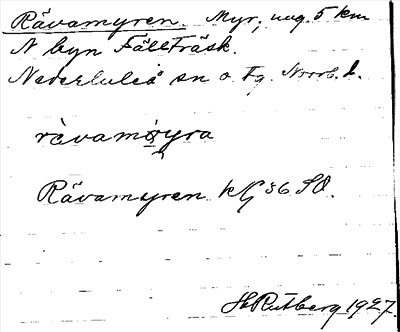 Rävamyren. Myr, ung. 5 km
N byn Fällträsk.
Nederluleå sn o. Fg. Norrb. l.
rävamyra
Rävamyren kG 36 SO.
H Rutberg 1927.